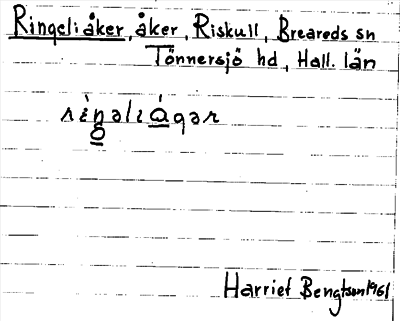 Ringeliåker, åker, Riskull, Breareds sn
Tönnersjö hd, Hall. län
rìŋəliágər
Harriet Bengtson 1961